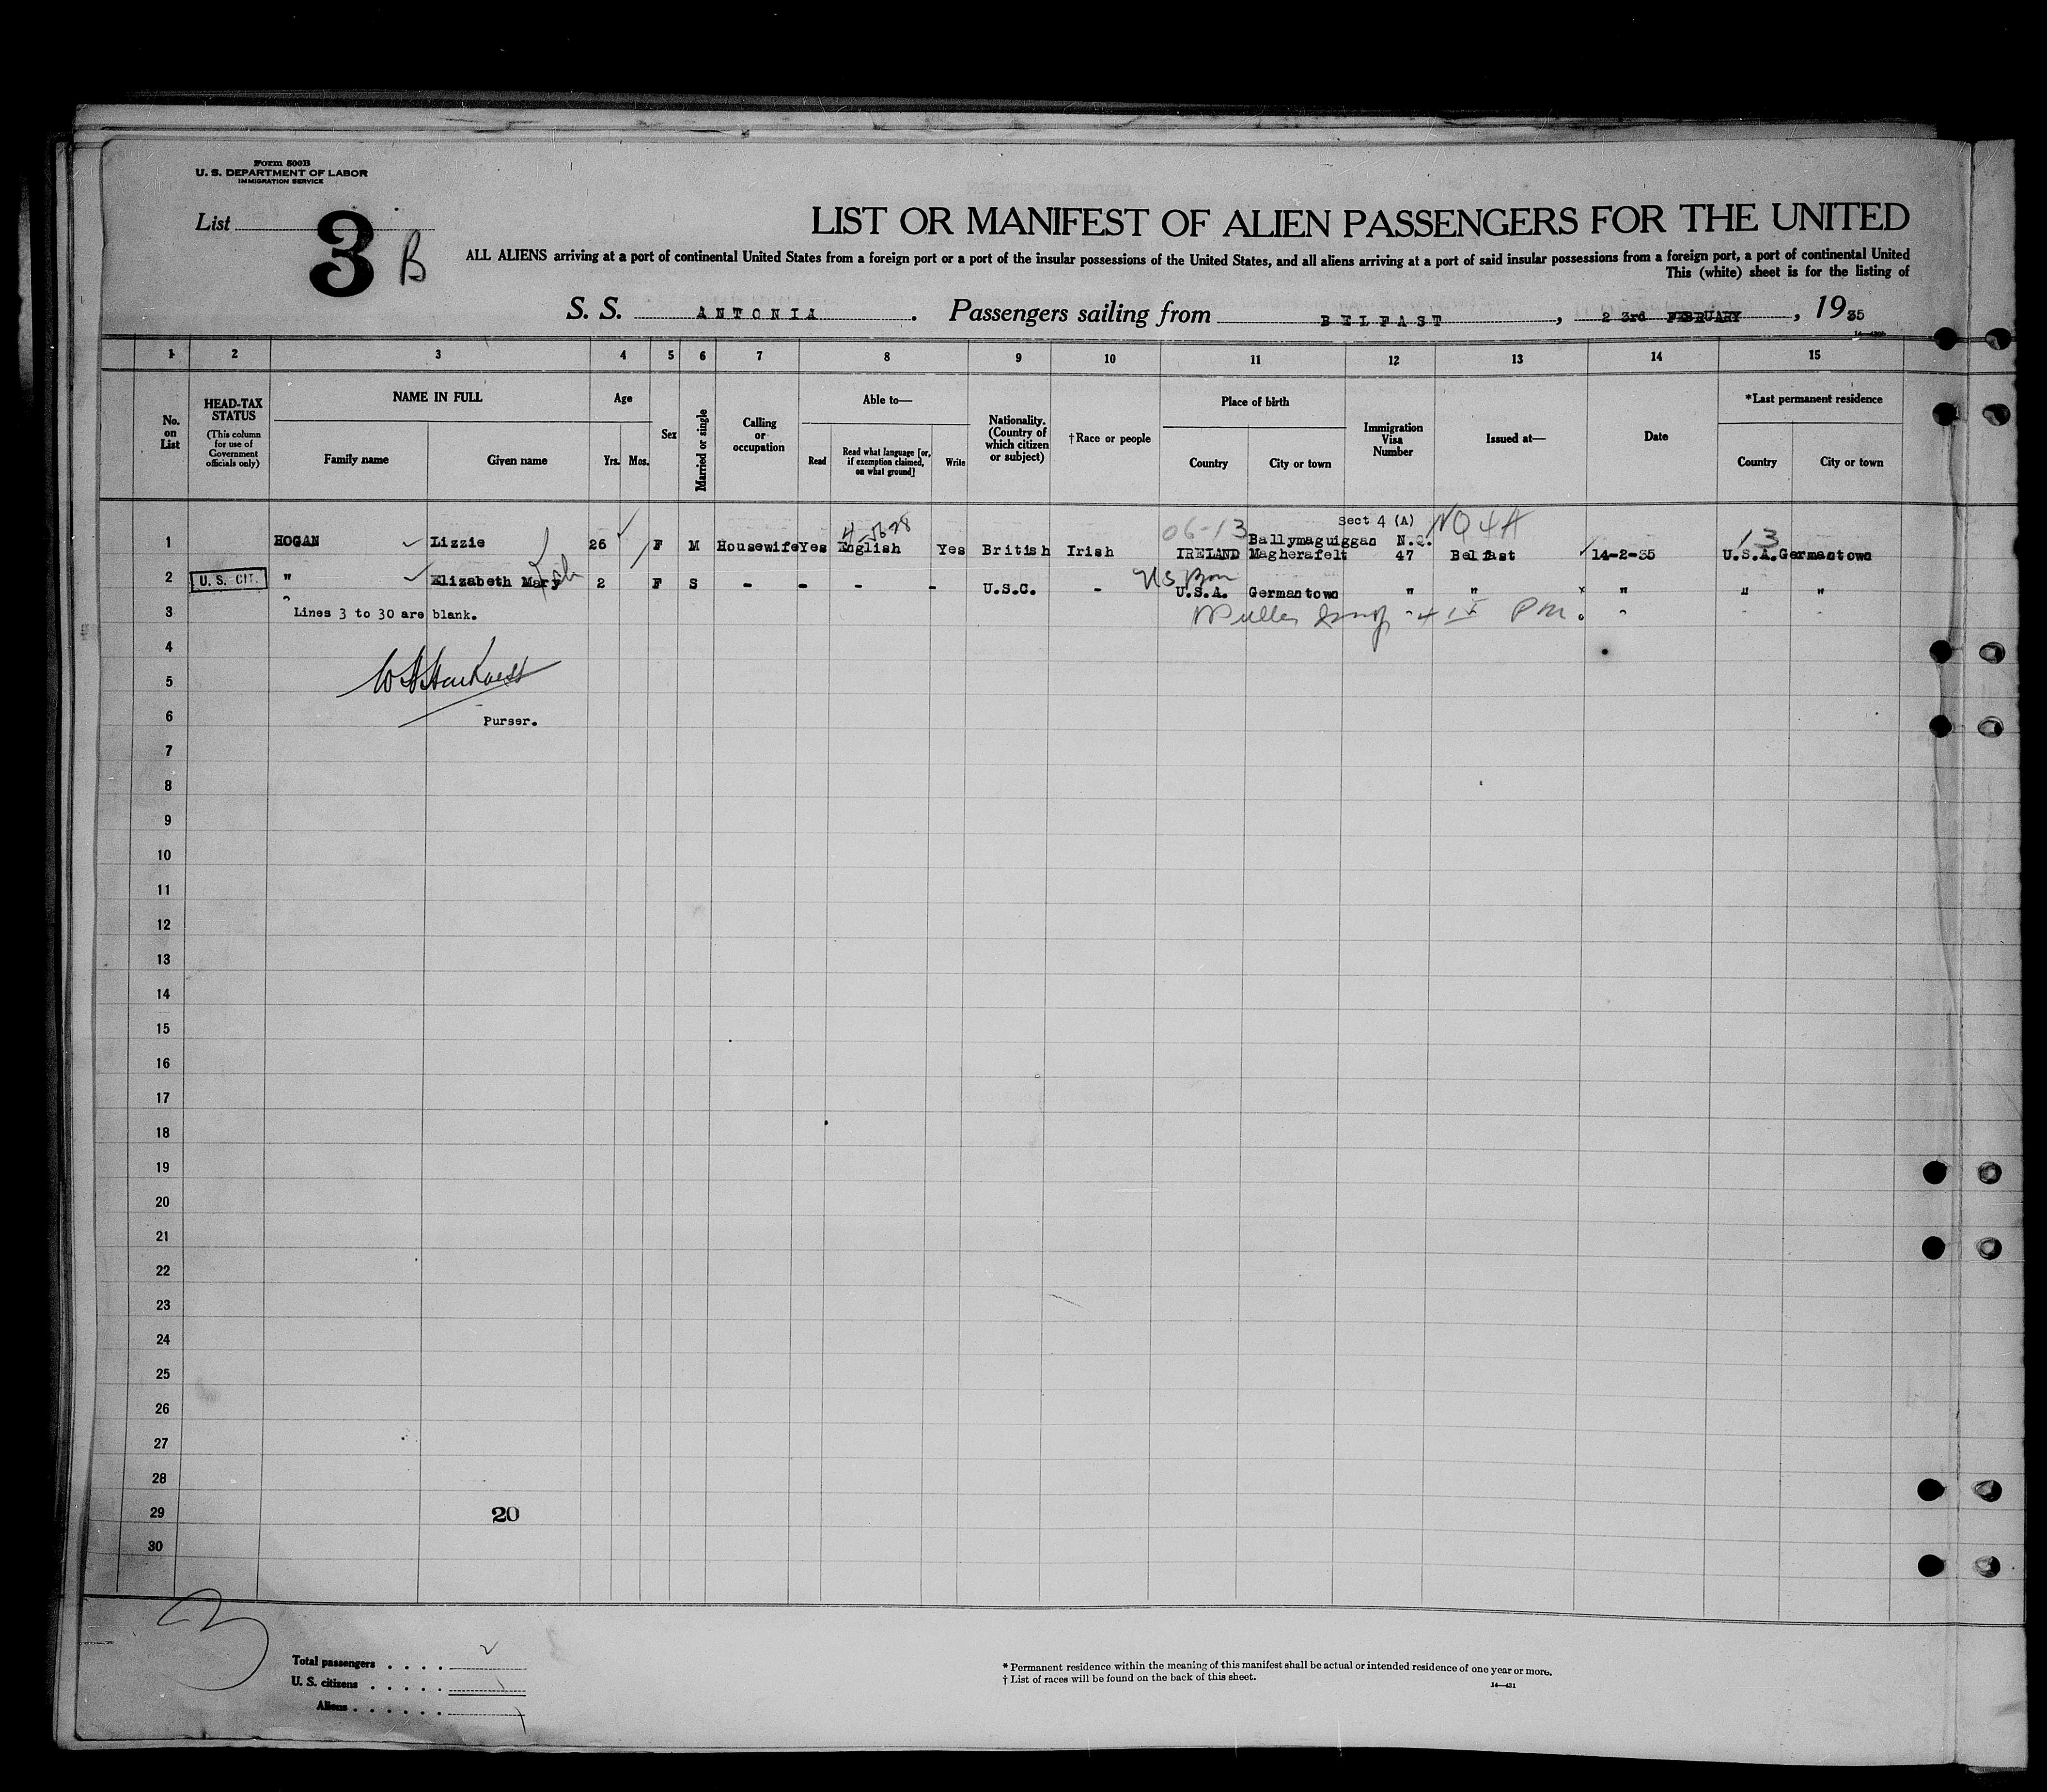 Form 500B
U. S. DEPARTMENT OF LABOR
IMMIGRATION SERVICE
List 3 B
LIST OR MANIFEST OF ALIEN PASSENGERS FOR THE UNITED
ALL ALIENS arriving at a port of continental United States from a foreign port or a port of the insular possessions of the United States, and all aliens arriving at a port of said insular possessions from a foreign port, a port of continental United
This (white) sheet is for the listing of
S. S. ANTONIA. Passengers sailing from BELFAST, 23rd FEBRUARY, 1935
1 2 3 4 5 6 7 8 9 10 11 12 13 14 15
No. on List
HEAD-TAX STATUS
(This column for use of Government officials only)
NAME IN FULL
Family name Given name
Age
Yrs. Mos.
Sex
Married or single
Calling or occupation
Able to—
Read
Read what language [or, if exemption claimed, on what ground]
Write
Nationality. (Country of which citizen or subject)
†Race or people
Place of birth
Country City or town
Immigration Visa Number
Issued at—
Date
*Last permanent residence
Country City or town
06-13 Sect 4 (A) NQ 4A 13
1 HOGAN Lizzie 26 F M Housewife Yes English Yes British Irish IRELAND Ballymaguiggan Magherafelt N.Q. 47 Belfast 14-2-35 U.S.A. Germantown
US Born
2 U. S. CIT. " Elizabeth Mary 2 F S - - - - U.S.C. - U.S.A. Germantown " " " " "
3 Lines 3 to 30 are blank.
4
5
6 Purser.
7
8
9
10
11
12
13
14
15
16
17
18
19
20
21
22
23
24
25
26
27
28
29 20
30
3
Total passengers . . . . 2
U. S. citizens . . . . . 1
Aliens . . . . . . 1
* Permanent residence within the meaning of this manifest shall be actual or intended residence of one year or more.
† List of races will be found on the back of this sheet.
14—431